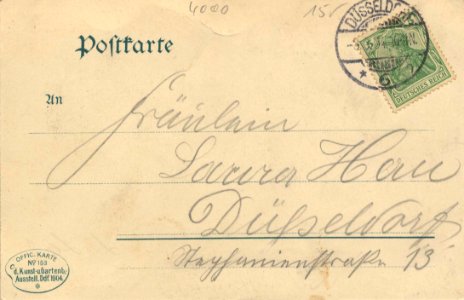 4000
15.-
Postkarte
DÜSSELDORF
5
DEUTSCHES REICH
An
Fräulein
Laura Hau
Düsseldorf
Stephanienstraße 13
OFFIC. KARTE
No 163
d. Kunst- u. Gartenb.
Ausstell. Ddf. 1904.